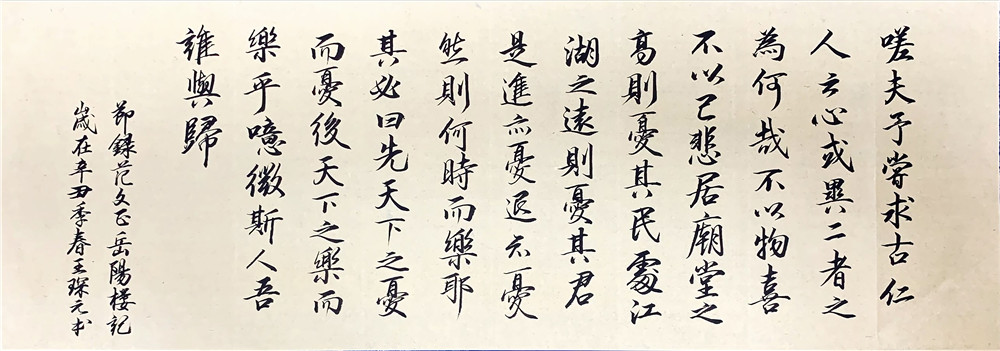 嗟夫予嘗求古仁
人之心或異二者之
為何哉不以物喜
不以己悲居廟堂之
高則憂其民處江
湖之遠則憂其君
是進亦憂退亦憂
然則何時而樂耶
其必曰先天下之憂
而憂後天下之樂而
樂乎噫微斯人吾
誰與歸
節錄范文正岳陽樓記
歲在辛丑季春王琛元書